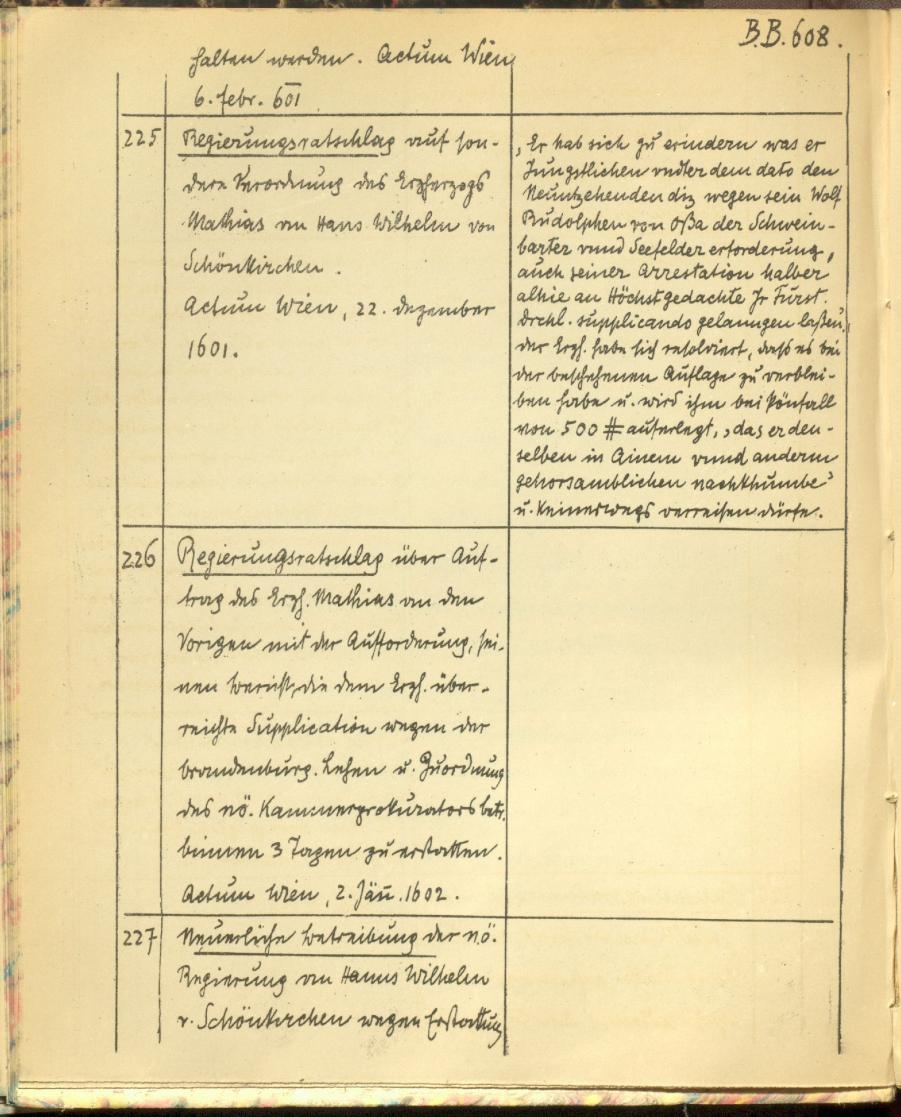 B.B. 608.
halten werden. Actum Wien,
6. febr. 601
225
Regierungsratschlag auf son-
dere Verordnung des Erzherzogs
Mathias an Hans Wilhelm von
Schönkirchen.
Actum Wien, 22. Dezember
1601.
„Er hab sich zu erindern was er
Jungstlichen vndter dem dato den
Neuntzehenden diz wegen sein Wolf
Rudolphen von Oßa der Schwein-
barter vnnd Seefelder erforderung,
auch seiner Arrestation halber
alhie an Höchstgedachte Jr Fürst.
Drchl. supplicando gelanngen laßen,
der Erzh. habe sich resolviert, dass es bei
der beschehenen Auflage zu verblei-
ben habe u. wird ihm bei Pönfall
von 500 # auferlegt, „das er den-
selben in Ainem vnnd anderm
gehorsamblichen nachkhumbe"
u. keineswegs verreisen dürfe.
226
Regierungsratschlag über Auf-
trag des Erzh. Mathias an den
Vorigen mit der Aufforderung, sei-
nen Bericht, die dem Erzh. über-
reichte Supplication wegen der
brandenburg. Lehen u. Zuordnung
des nö. Kammerprokurators betr.
binnen 3 Tagen zu erstatten.
Actum Wien, 2. Jän. 1602.
227
Neuerliche Betreibung der nö.
Regierung an Hanns Wilhelm
v. Schönkirchen wegen Erstattung